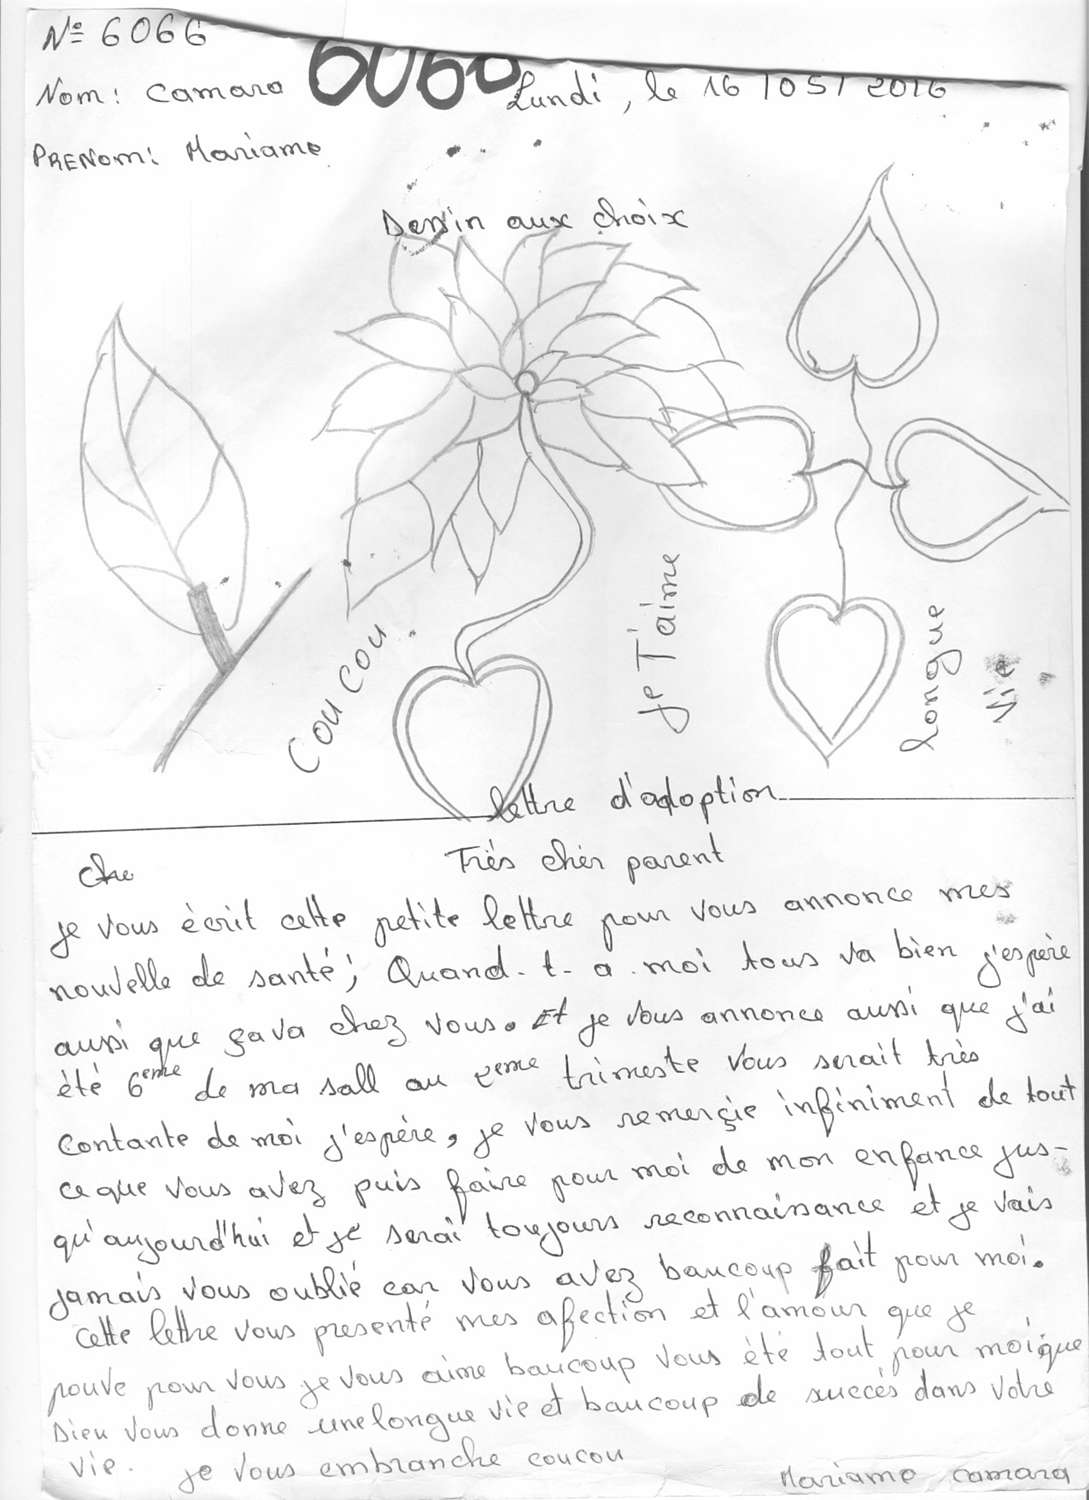 N° 6066
6060
Nom: Camara
Lundi, le 16/05/2016
PRENom: Mariame
Dessin aux choix
coucou
je T'aime
longue
vie
lettre d'adoption
Che
Très chèr parent
je vous écrit cette petite lettre pour vous annonce mes
nouvelle de santé; Quand-t-a moi tous va bien j'espère
aussi que çava chez vous. Et je vous annonce aussi que j'ai
été 6eme de ma sall au 2eme trimeste vous serait très
contante de moi j'espère, je vous remerçie infiniment de tout
ceque vous avez puis faire pour moi de mon enfance jus-
qu'aujourd'hui et je serai toujours reconnaissance et je vais
jamais vous oublié car vous avez baucoup fait pour moi.
cette lettre vous presenté mes afection et l'amour que je
pouve pour vous je vous aime baucoup vous été tout pour moi que
Dieu vous donne une longue vie et baucoup de succès dans votre
vie. je vous embranche coucou
Mariame camara